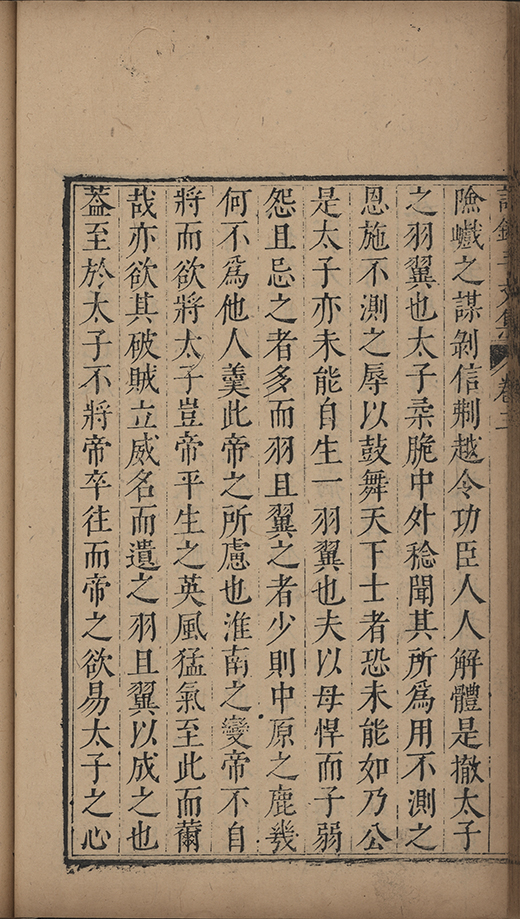 集 卷
險巇之謀剝信越令功臣人人解體是撤太子
之羽翼也太子柔脆中外稔聞其所爲用不測之
恩施不測之辱以鼓舞天下士者恐未能如乃公
是太子亦未能自生一羽翼也夫以母悍而子弱
怨且忌之者多而羽且翼之者少則中原之鹿幾
何不爲他人羹此帝之所慮也淮南之變帝不自
將而欲將太子豈帝平生之英風猛氣至此而薾
哉亦欲其破賊立威名而遺之羽且翼以成之也
葢至於太子不將帝卒往而帝之欲易太子之心